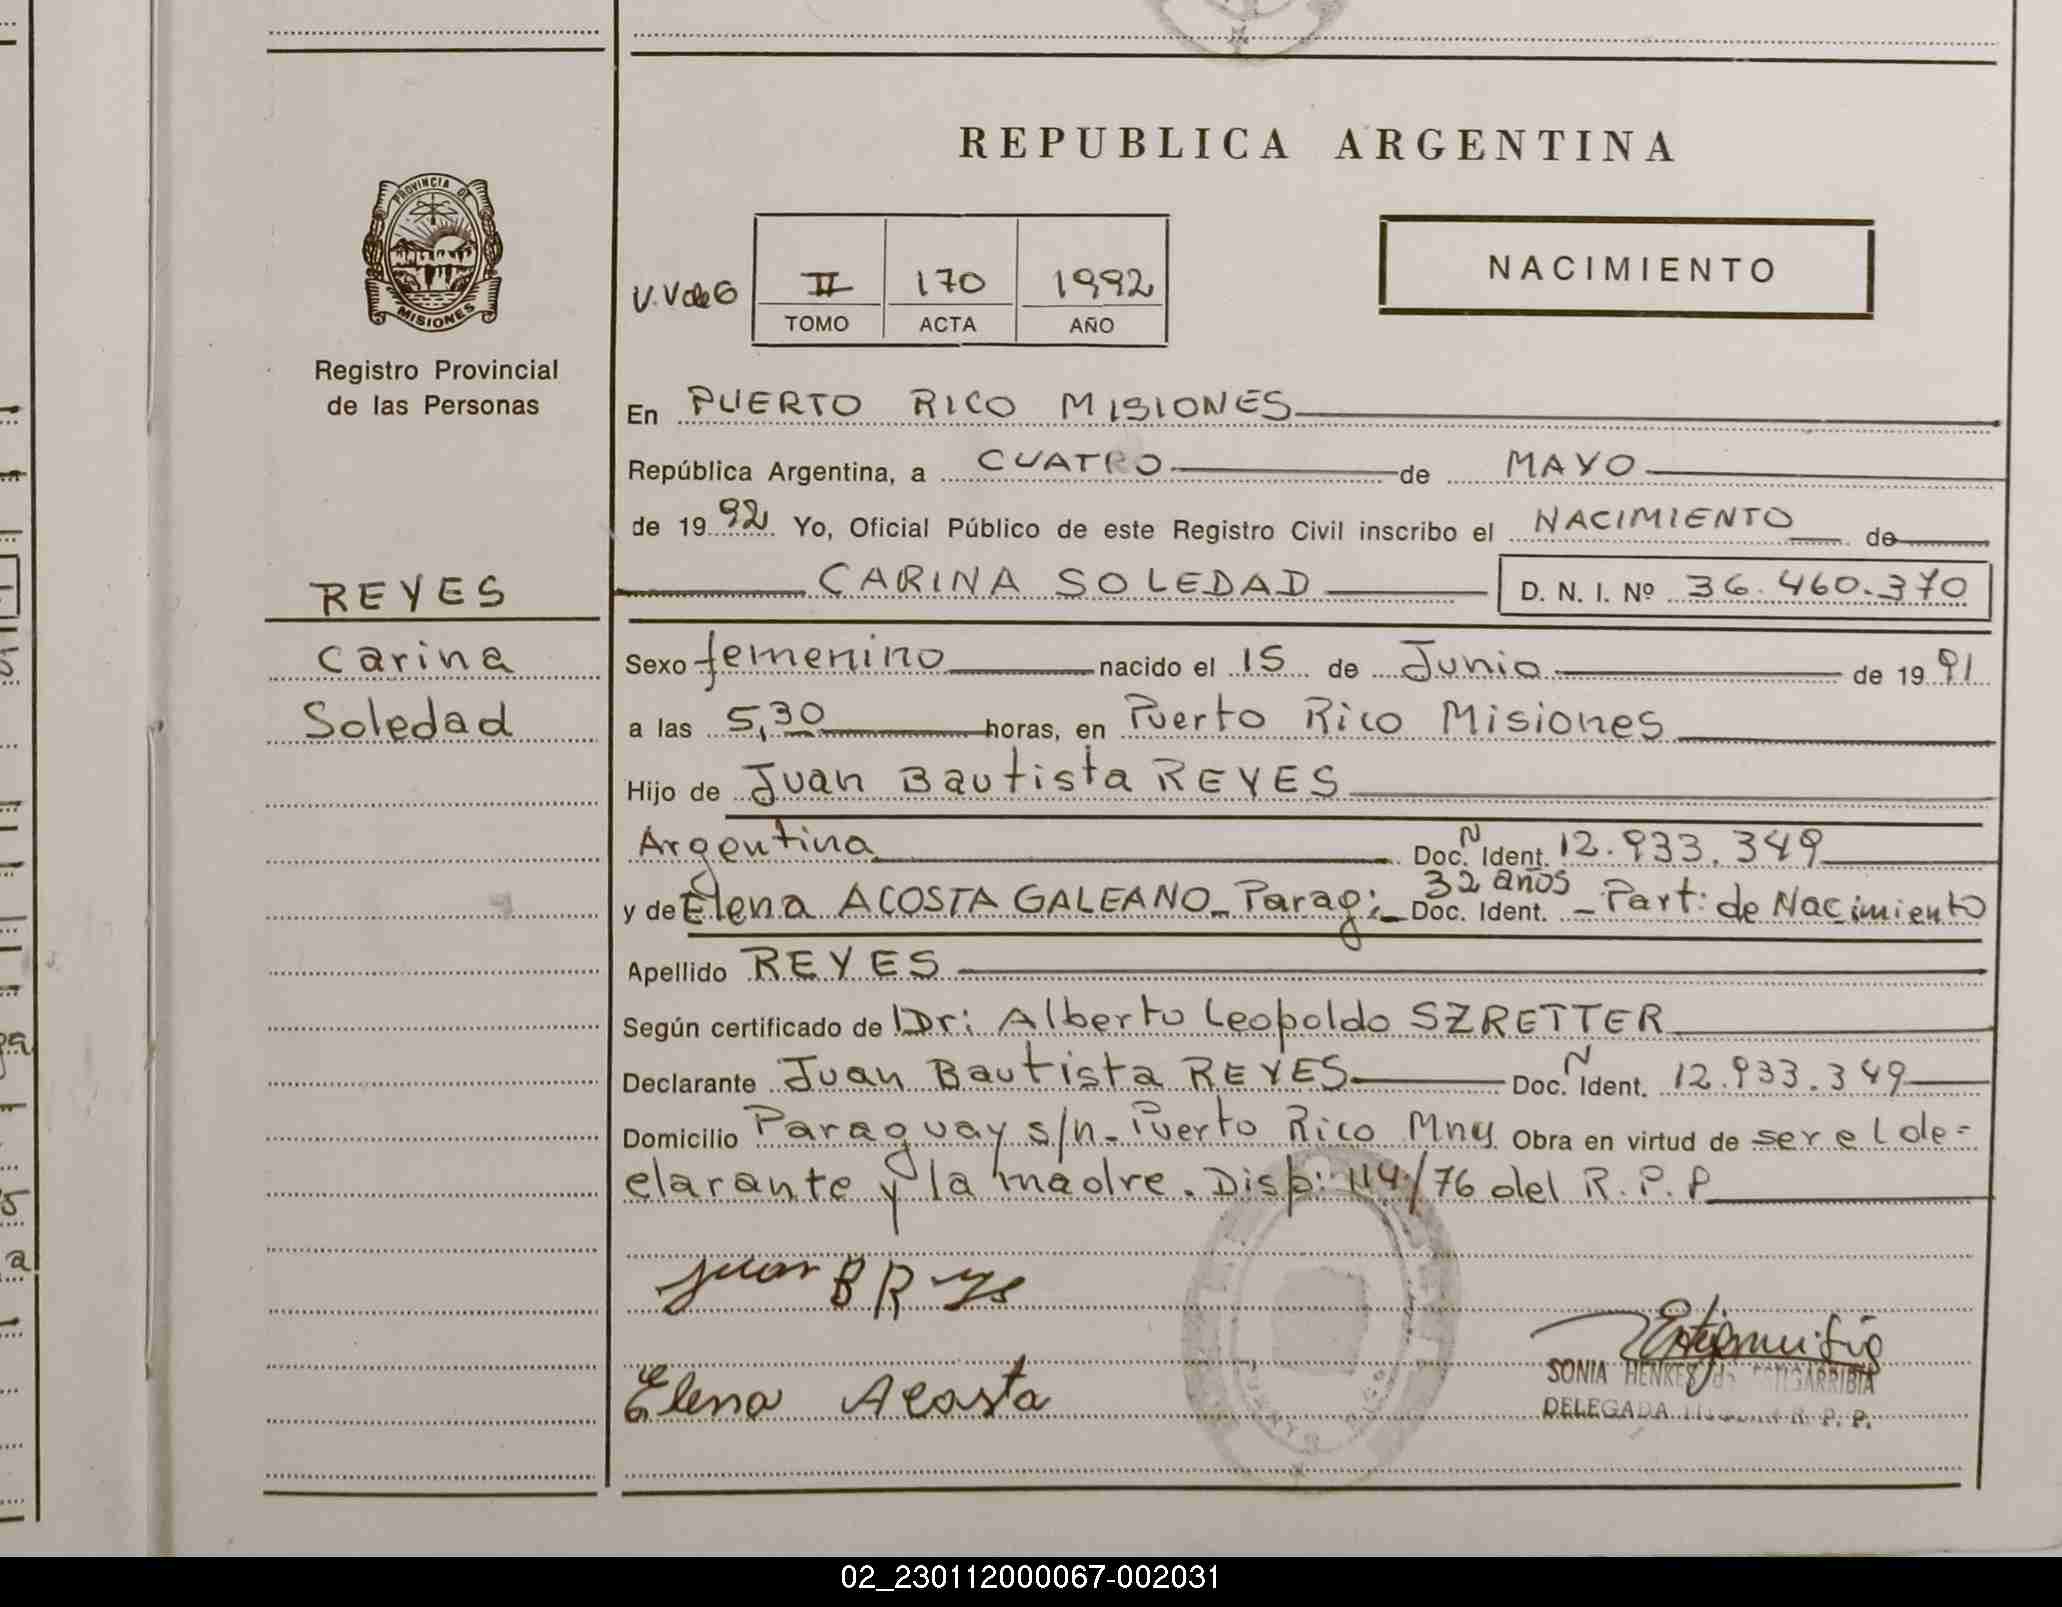 REPUBLICA ARGENTINA
PROVINCIA DE
MISIONES
Registro Provincial
de las Personas
V.V de G
II 170 1992
TOMO ACTA AÑO
NACIMIENTO
En PUERTO RICO MISIONES
República Argentina, a CUATRO de MAYO
de 19 92 Yo, Oficial Público de este Registro Civil inscribo el NACIMIENTO de
CARINA SOLEDAD D. N. I. Nº 36.460.370
REYES
Carina
Soledad
Sexo femenino nacido el 15 de Junio de 19 91
a las 5,30 horas, en Puerto Rico Misiones
Hijo de Juan Bautista REYES
Argentina Doc. N Ident. 12.933.349
y de Elena ACOSTA GALEANO - Parag: 32 años Doc. Ident. - Part: de Nacimiento
Apellido REYES
Según certificado de Dr: Alberto Leopoldo SZRETTER
Declarante Juan Bautista REYES Doc. N Ident. 12.933.349
Domicilio Paraguay s/n - Puerto Rico Mnes Obra en virtud de ser el de=
clarante y la madre. Disp: 114/76 del R.P.P
Juan B Reys
Elena Acosta
SONIA HENKES de ESTIGARRIBIA
DELEGADA R. P. P.
02_230112000067-002031